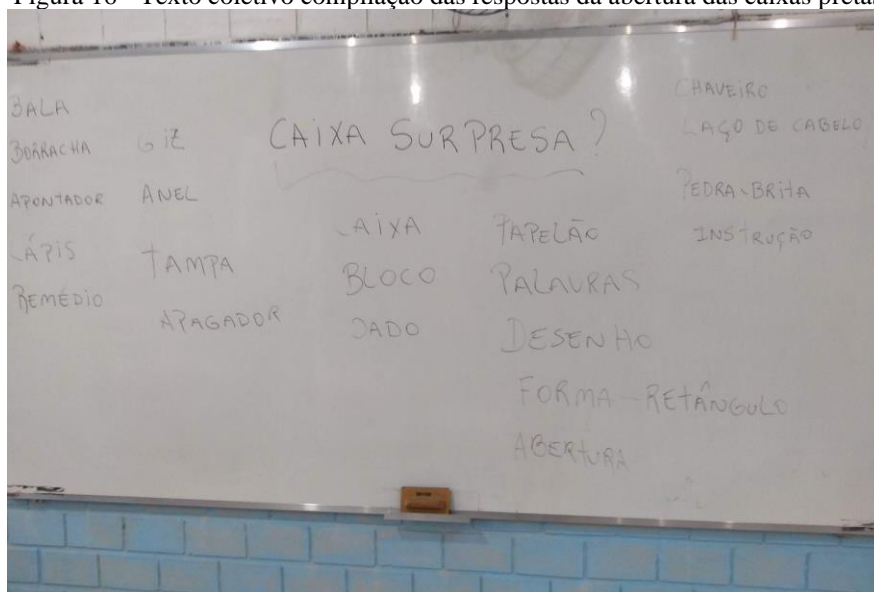 Figura 16 - Texto coletivo compilação das respostas da abertura das caixas pretas
CAIXA SURPRESA?
BALA
BORRACHA
APONTADOR
LÁPIS
REMÉDIO
GIZ
ANEL
TAMPA
APAGADOR
CAIXA
BLOCO
DADO
PAPELÃO
PALAVRAS
DESENHO
FORMA - RETÂNGULO
ABERTURA
CHAVEIRO
LAÇO DE CABELO
PEDRA-BRITA
INSTRUÇÃO